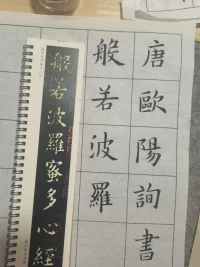 唐歐陽詢書
般若波羅
般若波羅蜜多心經